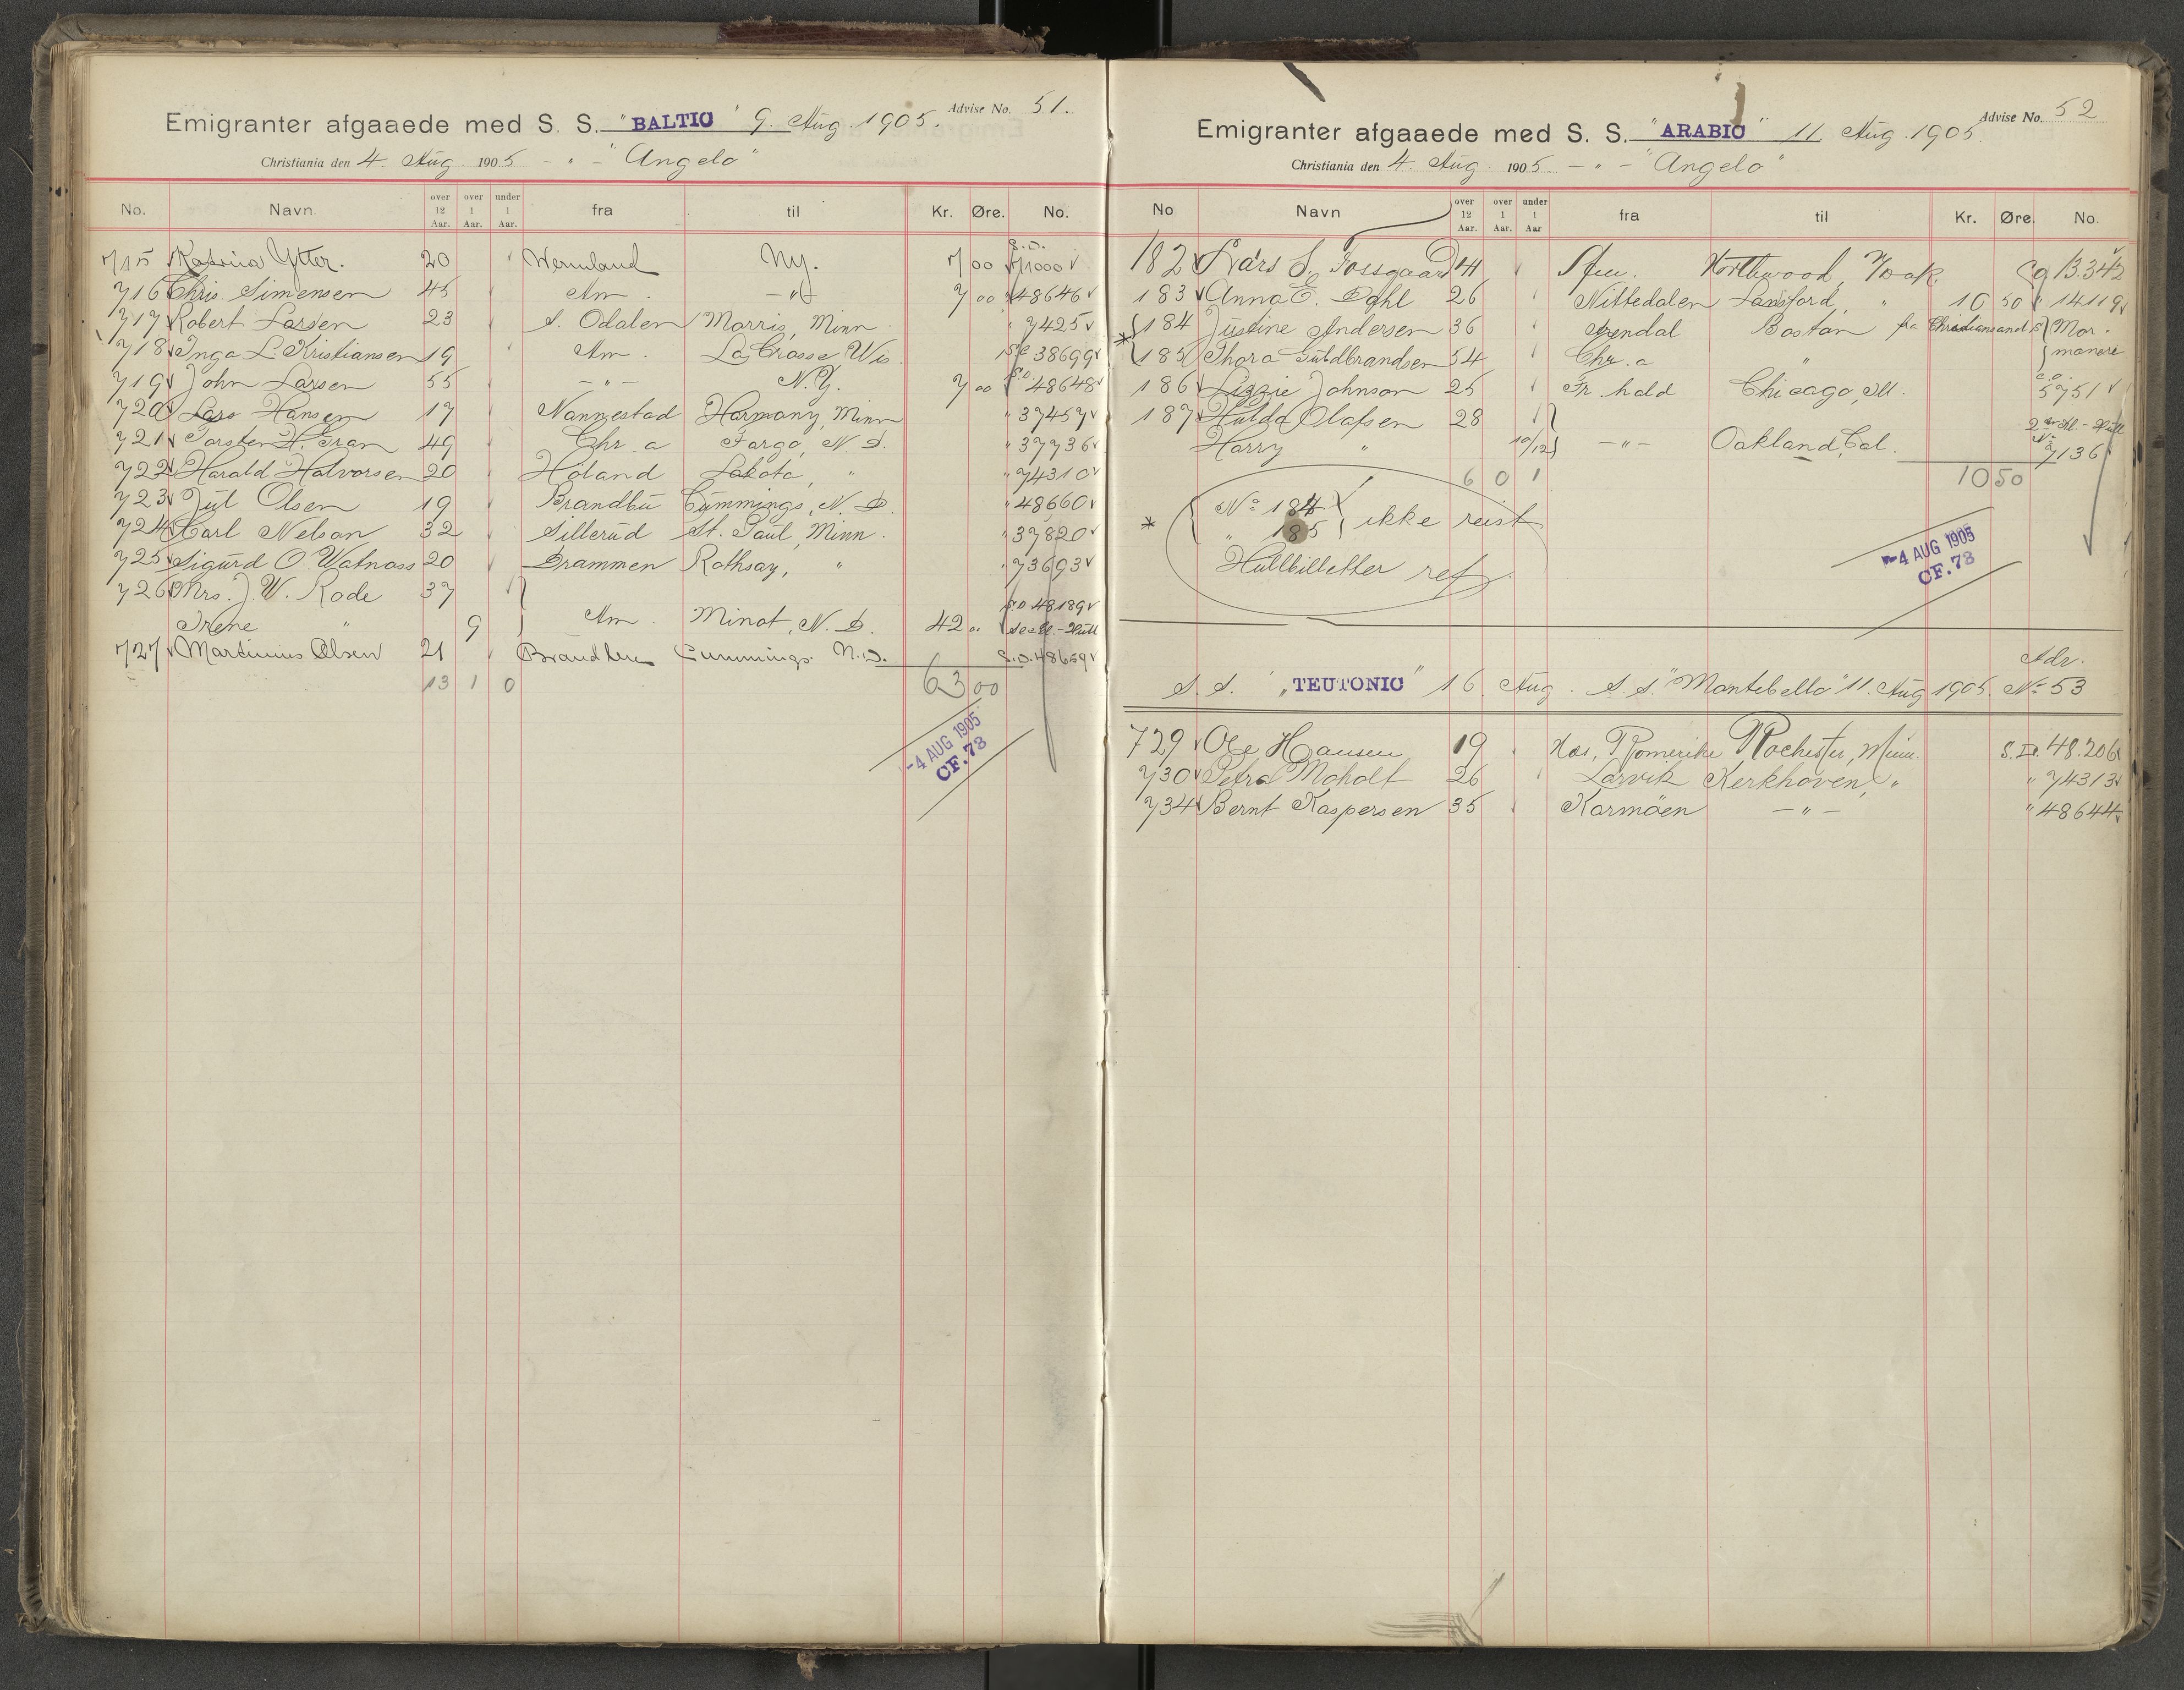 Emigranter afgaaede med S. S. "BALTIC" 9. Aug. 1905. Advise No. 51.
Christiania den 4. Aug. 1905 - " - "Angelo"
No. Navn over 12 Aar. over 1 Aar. under 1 Aar. fra til Kr. Øre. No.
715 Katrina Ytter. 20 Wermland Ny. 7 00 S.D. 71000
716 Chris. Simensen 45 Am. - " - 7 00 " 48646
717 Robert Larsen 23 S. Odalen Morris, Minn. " 7425
718 Inga L. Kristiansen 19 Am. La Crosse Wis. 38699
719 John Larsen 55 - " - N.Y. 7 00 S.D. 48648
720 Lars Hansen 17 Nannestad Harmony, Minn " 37457
721 Torsten H. Gran 49 Chr.a Fargo, N. D. " 37736
722 Harald Halvorsen 20 Høland Lakota, " " 74310
723 Jul Olsen 19 Brandbu Cummings, N. D. " 48660
724 Carl Nelson 32 Sillerud St. Paul, Minn. " 37820
725 Sigurd O. Watnaas 20 Drammen Rothsay, " " 73693
726 Mrs. J. W. Rode 37
Irene " 9 Am. Minot, N. D. 42 00 S.D 48189
727 Martinius Olsen 21 Brandbu Cummings. N.D. S.D. 48659
13 1 0 63 00
-4 AUG 1905
CF. 78
Emigranter afgaaede med S. S. "ARABIC" 11. Aug. 1905. Advise No. 52
Christiania den 4. Aug. 1905 - " - "Angelo"
No Navn over 12 Aar. over 1 Aar. under 1 Aar fra til Kr. Øre. No.
182 Lars S. Fossgaard 41 Am. Northwood, 13.342
183 Anna E. Dahl 26 Nittedalen Lansford, " 10 50 " 14119
* 184 Justine Andersen 36 Arendal Boston fra Christiansand S Mor-
185 Thora Guldbrandsen 54 Chr.a " mänere
186 Lizzie Johnson 25 Fr.hald Chicago, Ill. C.O. 5751
187 Hulda Olafsen 28
Harry " 10/12 - " - Oakland, Cal. No 7136
6 0 1 10 50
* No 184
" 185 ikke reist
Hullbilletter ref.
-4 AUG 1905
CF. 78
S. S. "TEUTONIC" 16. Aug. S. S. "Montebello" 11. Aug 1905. Adv. No 53
729 Ole Hansen 19 Nes, Romerike Rochester, Minn. S.D. 48.206
730 Petra Moholt 26 Larvik Kerkhoven, " " 74313
734 Bernt Kaspersen 35 Karmöen - " - " 48644